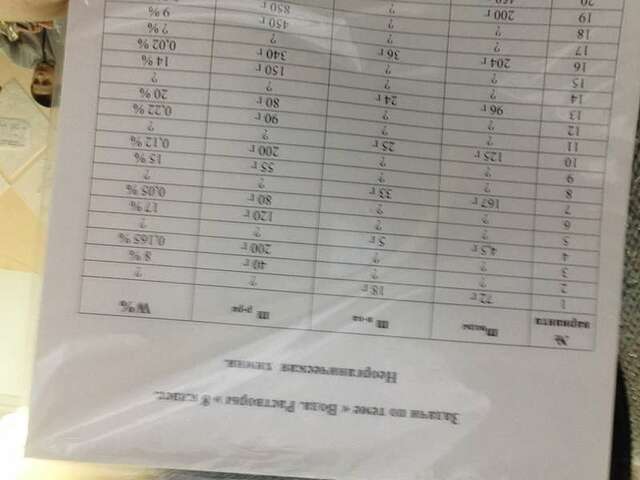 Задачи по теме « Вода. Растворы » 8 класс.
Неорганическая химия.
№ варианта m воды m в-ва m р-ра W%
1 72 г 18 г ? ?
2 ? ? 40 г 8 %
3 ? ? 200 г 0,165 %
4 4,5 г 5 г ? ?
5 ? ? 120 г 17 %
6 ? ? 80 г 0,05 %
7 167 г 33 г ? ?
8 ? ? 55 г 15 %
9 ? ? 200 г 0,12 %
10 125 г 25 г ? ?
11 ? ? 90 г 0,22 %
12 ? ? 80 г 20 %
13 96 г 24 г ? ?
14 ? ? 150 г 14 %
15 ? ? 340 г 0,02 %
16 204 г 36 г ? ? %
17 ? ? 450 г 9 %
18 ? ? 850 г
19 200 г ?
20